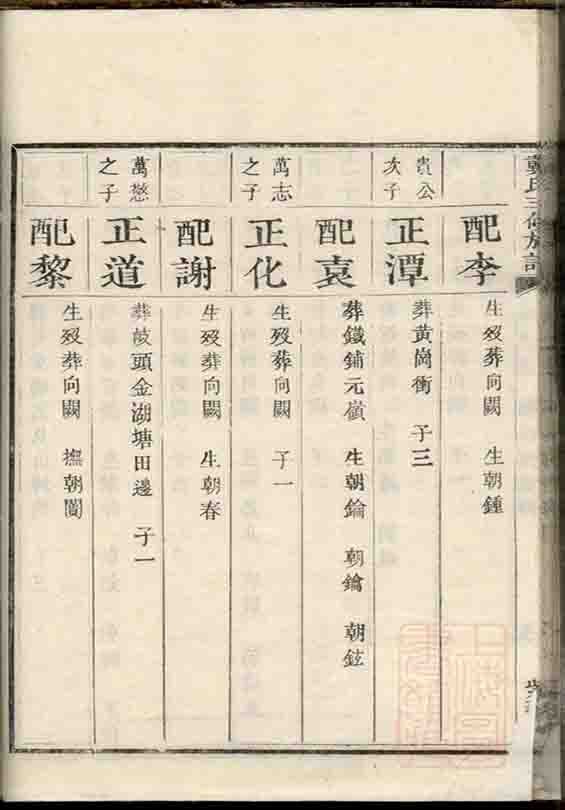 配李
生歿葬向闕 生朝鍾
貴公
次子
正潭
葬黃崗衝 子三
配袁
葬鐵鋪元嶺 生朝錀 朝鑰 朝鉉
萬志
之子
正化
生歿葬向闕 子一
配謝
生歿葬向闕 生朝春
萬慗
之子
正道
葬敲頭金湖塘田邊 子一
配黎
生歿葬向闕 撫朝闓